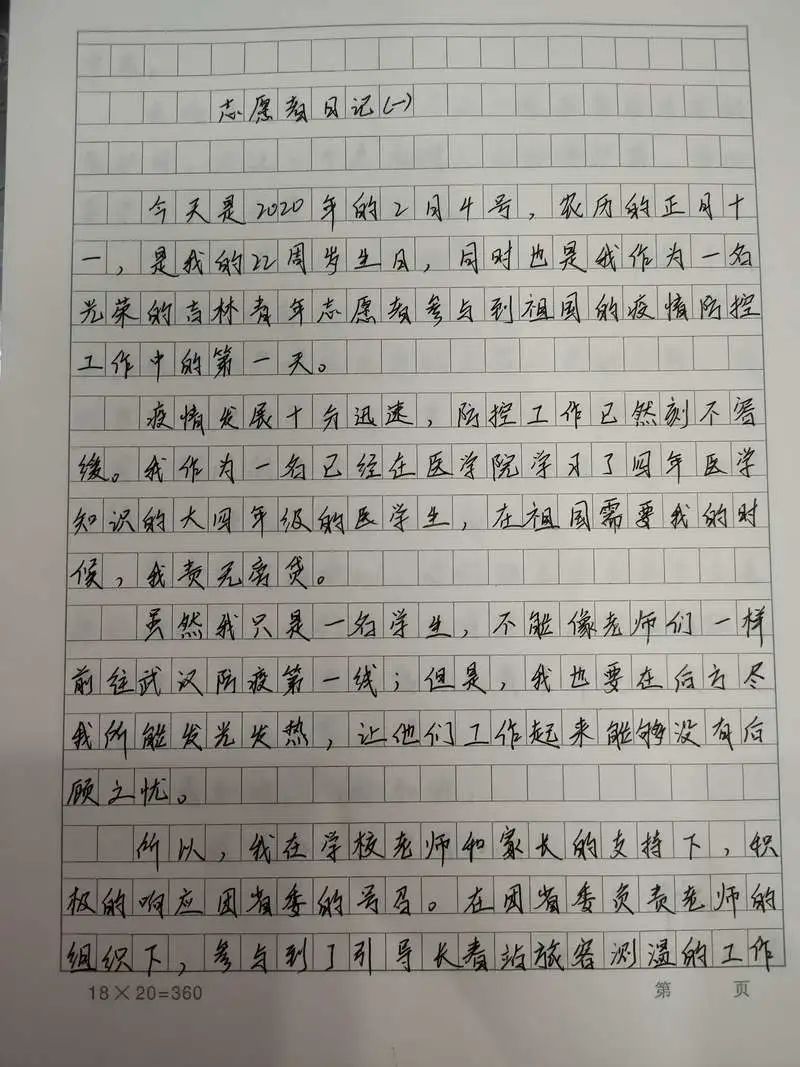 志愿者日记(一)
今天是2020年的2月4号，农历的正月十
一，是我的22周岁生日，同时也是我作为一名
光荣的吉林青年志愿者参与到祖国的疫情防控
工作中的第一天。
疫情发展十分迅速，防控工作已然刻不容
缓。我作为一名已经在医学院学习了四年医学
知识的大四年级的医学生，在祖国需要我的时
候，我责无旁贷。
虽然我只是一名学生，不能像老师们一样
前往武汉防疫第一线；但是，我也要在后方尽
我所能发光发热，让他们工作起来能够没有后
顾之忧。
所以，我在学校老师和家长的支持下，积
极的响应团省委的号召。在团省委负责老师的
组织下，参与到了引导长春站旅客测温的工作
18×20=360
第 页